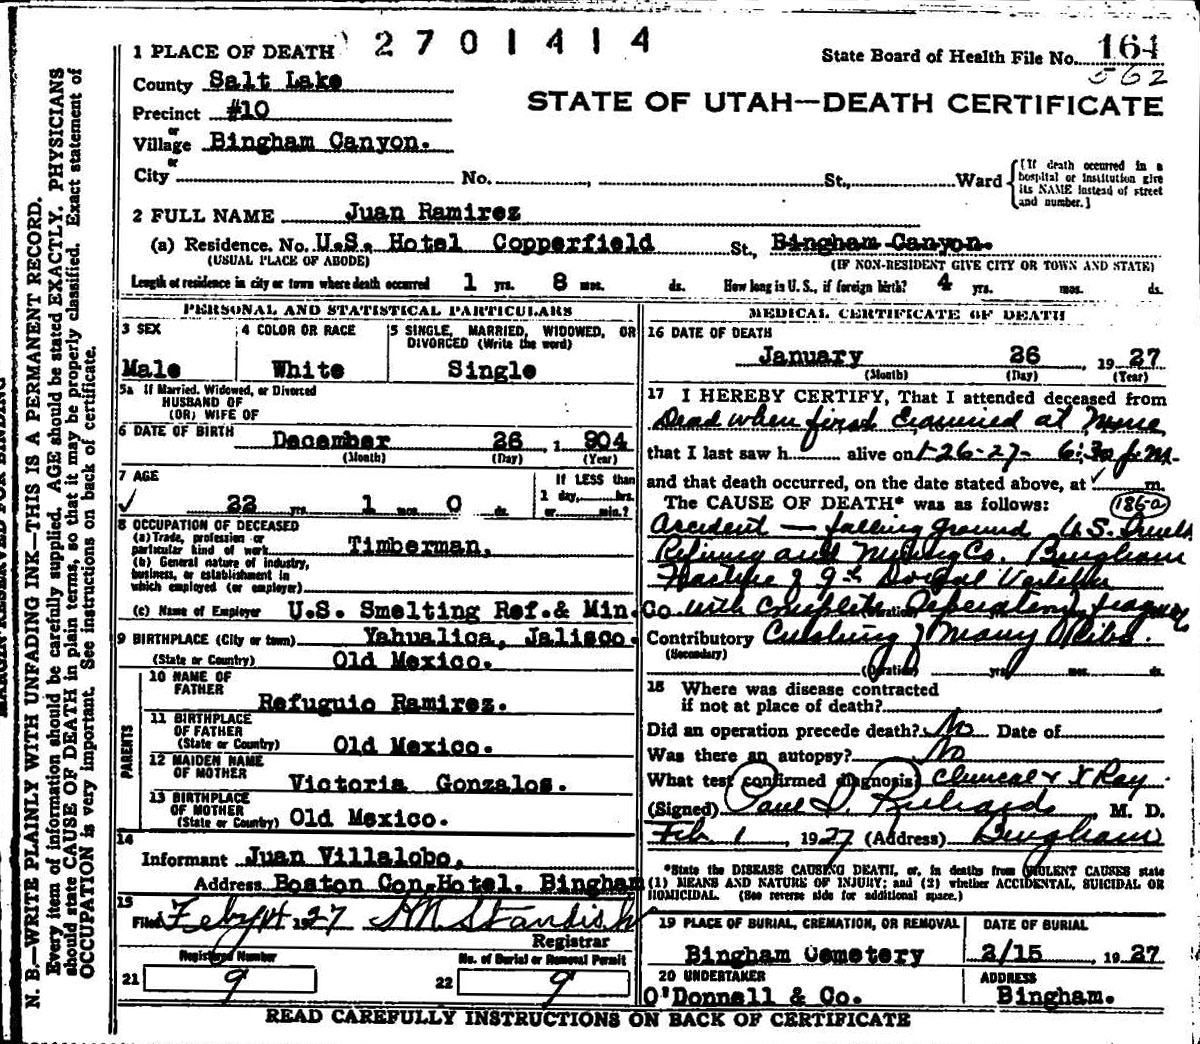 2701414
State Board of Health File No. 164
562
STATE OF UTAH—DEATH CERTIFICATE
1 PLACE OF DEATH
County Salt Lake
Precinct #10
or
Village Bingham Canyon.
or
City No. , St., Ward
[If death occurred in a hospital or institution give its NAME instead of street and number.]
2 FULL NAME Juan Ramirez
(a) Residence. No. U.S. Hotel Copperfield St., Bingham Canyon.
(USUAL PLACE OF ABODE) (IF NON-RESIDENT GIVE CITY OR TOWN AND STATE)
Length of residence in city or town where death occurred 1 yrs. 8 mos. ds. How long in U. S., if foreign birth? 4 yrs. mos. ds.
PERSONAL AND STATISTICAL PARTICULARS
3 SEX
Male
4 COLOR OR RACE
White
5 SINGLE, MARRIED, WIDOWED, OR DIVORCED (Write the word)
Single
5a If Married, Widowed, or Divorced
HUSBAND OF
(OR) WIFE OF
6 DATE OF BIRTH December 26 , 1 904
(Month) (Day) (Year)
7 AGE
22 yrs. 1 mos. 0 ds.
If LESS than
1 day, hrs.
or min.?
8 OCCUPATION OF DECEASED
(a) Trade, profession or
particular kind of work Timberman,
(b) General nature of industry,
business, or establishment in
which employed (or employer)
(c) Name of Employer U.S. Smelting Ref.& Min.Co
9 BIRTHPLACE (City or town) Yahualica, Jalisco.
(State or Country) Old Mexico.
PARENTS
10 NAME OF
FATHER
Refuguio Ramirez.
11 BIRTHPLACE
OF FATHER
(State or Country) Old Mexico.
12 MAIDEN NAME
OF MOTHER
Victoria Gonzalos.
13 BIRTHPLACE
OF MOTHER
(State or Country) Old Mexico.
14
Informant Juan Villalobo,
Address Boston Con.Hotel. Bingham
15
Filed Feby 14 1927 Standish
Registrar
Registered Number
21 9
No. of Burial or Removal Permit
22 9
MEDICAL CERTIFICATE OF DEATH
16 DATE OF DEATH
January 26 , 1927
(Month) (Day) (Year)
17 I HEREBY CERTIFY, That I attended deceased from
Dead when first Examined at Mine
that I last saw h alive on 1-26-27- 6:30 p.m.
and that death occurred, on the date stated above, at m.
The CAUSE OF DEATH* was as follows: 186-a
Accident — falling ground U.S. Smelt
Refining and Mining Co. Bingham
Fracture of 9th Dorsal Vertebra
with complete separation fragments
(Duration)
Contributory Crushing of Many Ribs.
(Secondary)
(Duration) yrs. mos. ds.
18 Where was disease contracted
if not at place of death?
Did an operation precede death? No Date of
Was there an autopsy? No
What test confirmed diagnosis? Clinical & X Ray
(Signed) Paul S. Richards , M. D.
Feb. 1 , 1927 (Address) Bingham
*State the DISEASE CAUSING DEATH, or, in deaths from VIOLENT CAUSES state
(1) MEANS AND NATURE OF INJURY; and (2) whether ACCIDENTAL, SUICIDAL OR
HOMICIDAL. (See reverse side for additional space.)
19 PLACE OF BURIAL, CREMATION, OR REMOVAL
Bingham Cemetery
DATE OF BURIAL
2/15 , 1927
20 UNDERTAKER
O'Donnell & Co.
ADDRESS
Bingham.
READ CAREFULLY INSTRUCTIONS ON BACK OF CERTIFICATE
MARGIN RESERVED FOR BINDING
N. B.—WRITE PLAINLY WITH UNFADING INK—THIS IS A PERMANENT RECORD.
Every item of information should be carefully supplied. AGE should be stated EXACTLY. PHYSICIANS
should state CAUSE OF DEATH in plain terms, so that it may be properly classified. Exact statement of
OCCUPATION is very important. See instructions on back of certificate.